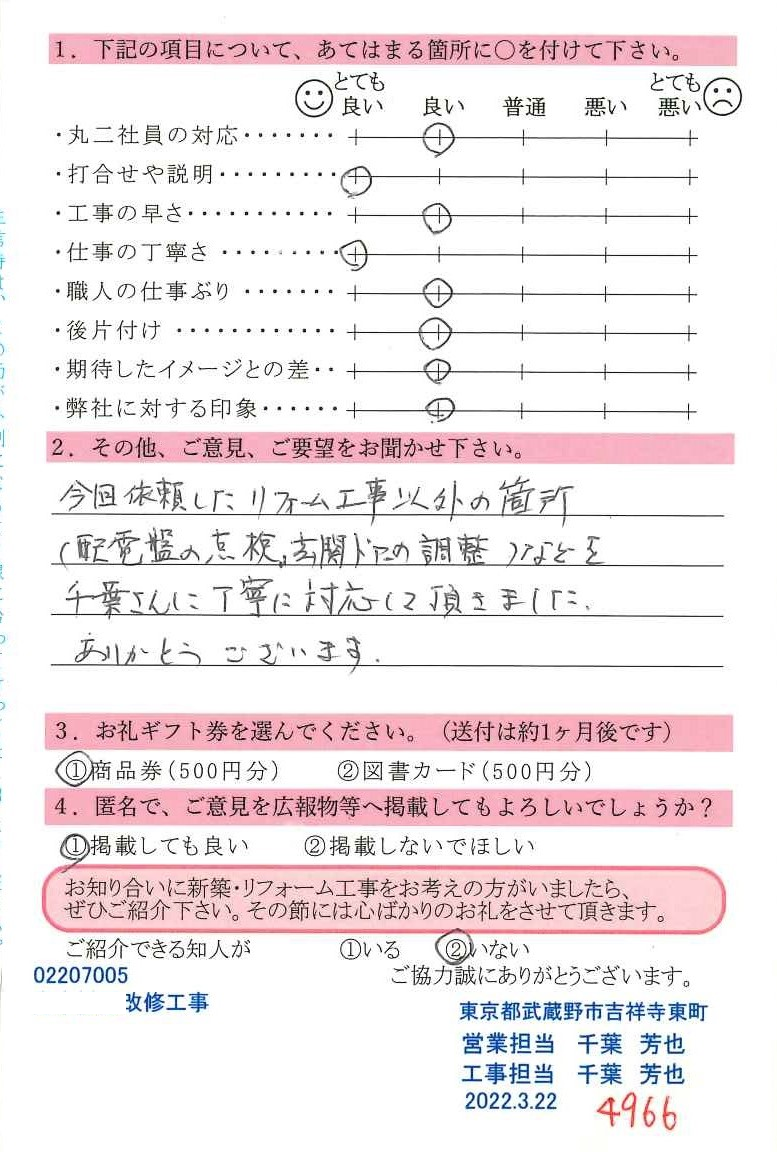 1．下記の項目について、あてはまる箇所に○を付けて下さい。
とても良い 良い 普通 悪い とても悪い
・丸二社員の対応・・・・・・・
・打合せや説明・・・・・・・・・
・工事の早さ・・・・・・・・・・・
・仕事の丁寧さ・・・・・・・・
・職人の仕事ぶり・・・・・・・
・後片付け・・・・・・・・・・・・
・期待したイメージとの差・・
・弊社に対する印象・・・・・・
2．その他、ご意見、ご要望をお聞かせ下さい。
今回依頼したリフォーム工事以外の箇所
(配電盤の点検、玄関ドアの調整)などを
千葉さんに丁寧に対応して頂きました.
ありがとうございます.
3．お礼ギフト券を選んでください。（送付は約1ヶ月後です）
①商品券(500円分) ②図書カード(500円分)
4．匿名で、ご意見を広報物等へ掲載してもよろしいでしょうか？
①掲載しても良い ②掲載しないでほしい
お知り合いに新築・リフォーム工事をお考えの方がいましたら、
ぜひご紹介下さい。その節には心ばかりのお礼をさせて頂きます。
ご紹介できる知人が ①いる ②いない
ご協力誠にありがとうございます。
02207005
改修工事
東京都武蔵野市吉祥寺東町
営業担当 千葉 芳也
工事担当 千葉 芳也
2022.3.22
4966